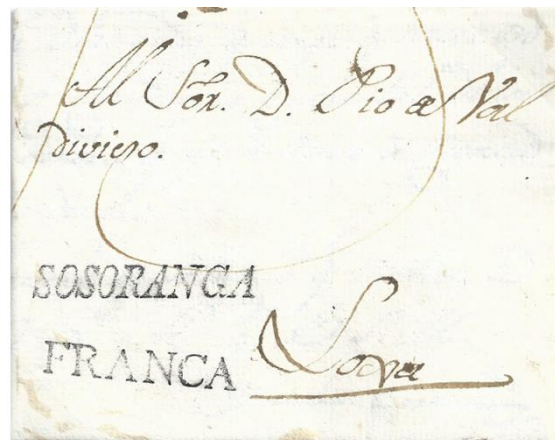 Al Sor. D. Pio de Val
divieso.
SOSORANGA
FRANCA
Loxa